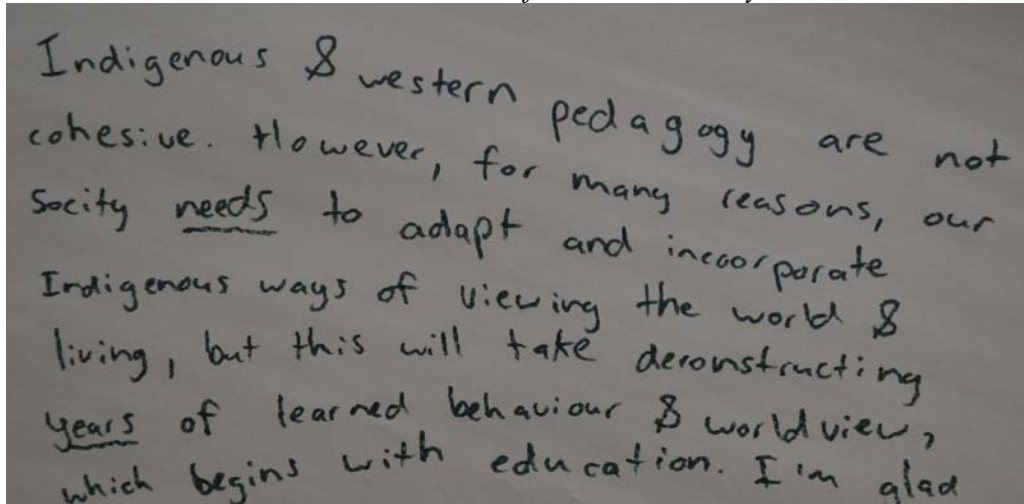 Indigenous & western pedagogy are not
cohesive. However, for many reasons, our
Socity needs to adapt and incoorporate
Indigenous ways of viewing the world &
living, but this will take deconstructing
years of learned behaviour & worldview,
which begins with education. I'm glad